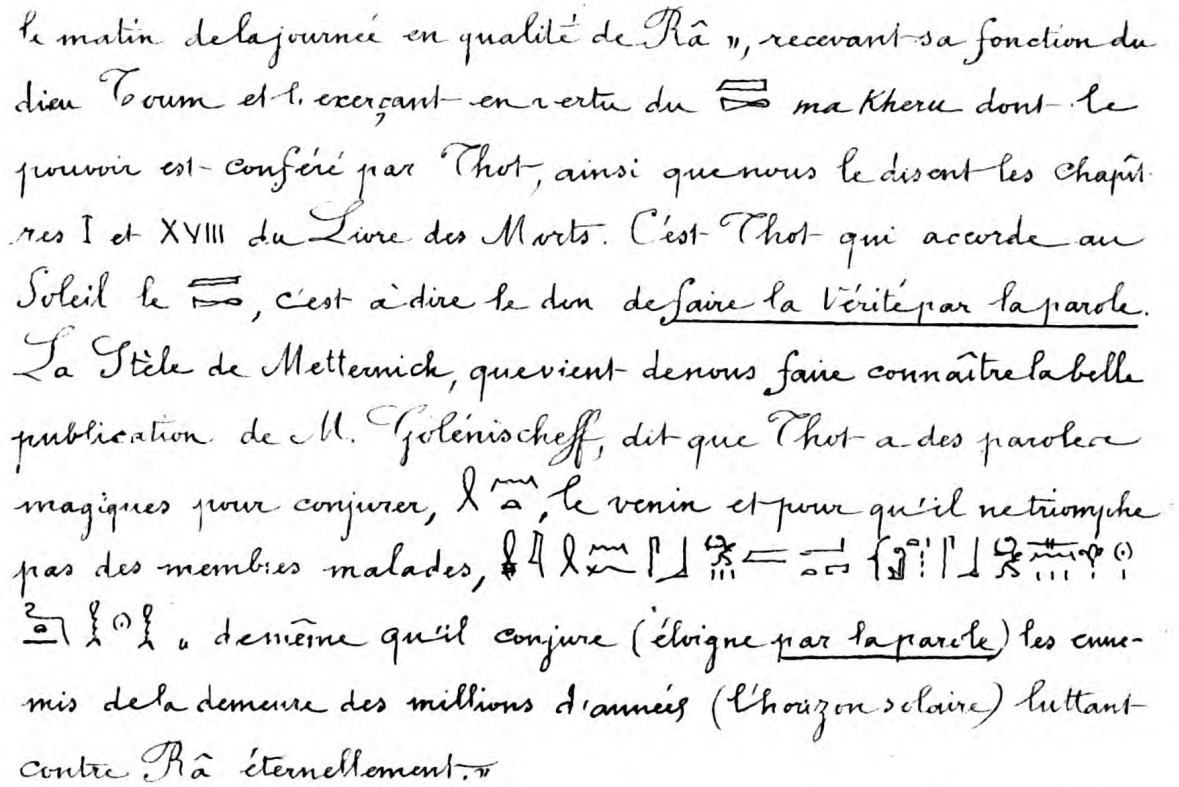 le matin de la journée en qualité de Râ », recevant sa fonction du
dieu Toum et l'exerçant en vertu du ma Kheru dont le
pouvoir est conféré par Thot, ainsi que nous le disent les Chapît-
res I et XVIII du Livre des Morts. C'est Thot qui accorde au
Soleil le , c'est à dire le don de faire la Vérité par la parole.
La Stèle de Metternick, que vient de nous faire connaître la belle
publication de M. Golénischeff, dit que Thot a des paroles
magiques pour conjurer, , le venin et pour qu'il ne triomphe
pas des membres malades,
" de même qu'il conjure (éloigne par la parole) les enne-
mis de la demeure des millions d'années (l'horizon solaire) luttant
contre Râ éternellement. »